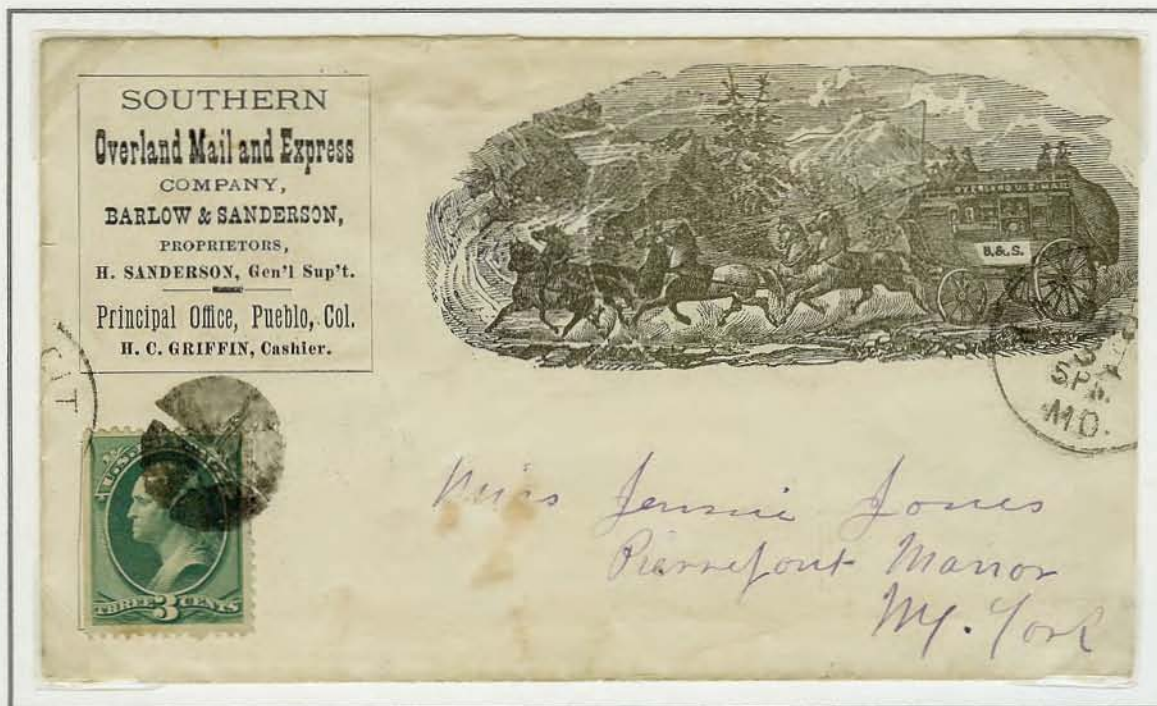 SOUTHERN
Overland Mail and Express
COMPANY,
BARLOW & SANDERSON,
PROPRIETORS,
H. SANDERSON, Gen'l Sup't.
Principal Office, Pueblo, Col.
H. C. GRIFFIN, Cashier.
OVERLAND U.S. MAIL
B.&.S.
SPR.
MO.
IT
THREE 3 CENTS
Miss Jennie Jones
Pierrepont Manor
NY. York